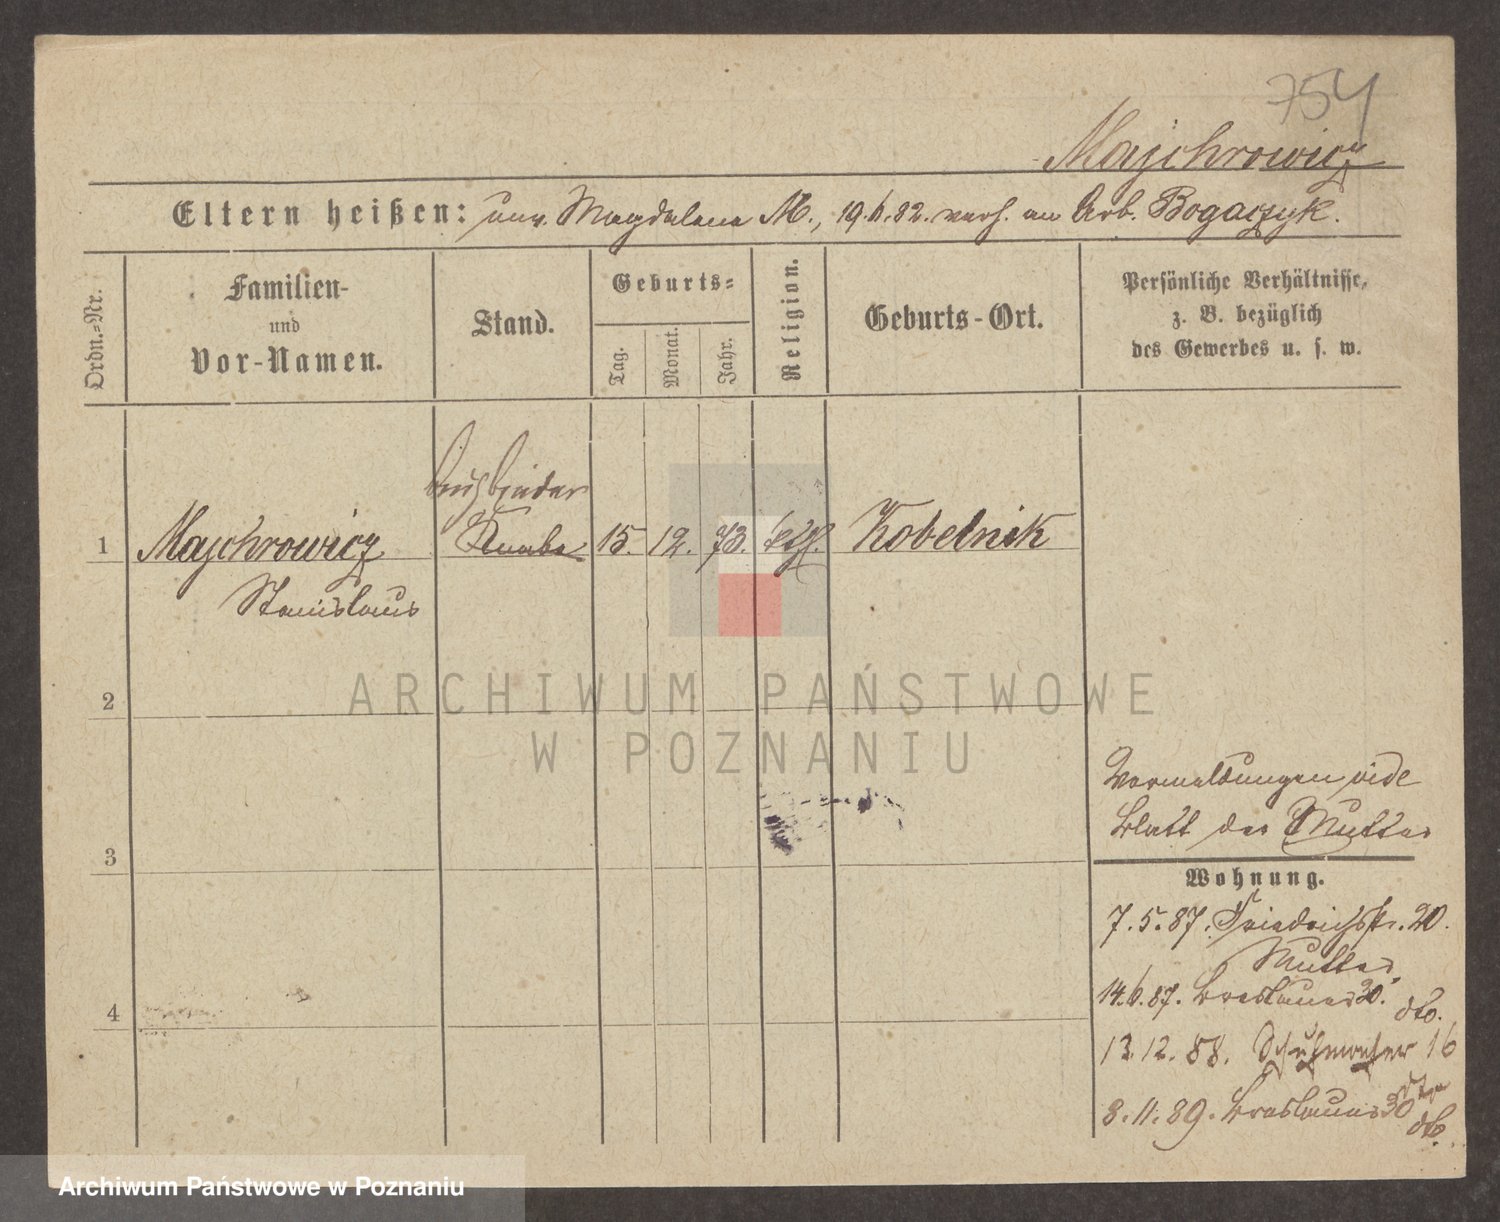 754
Majchrowicz
Eltern heißen: unv. Magdalena M., 19.6.82. verh. an Arb. Bogaczyk.
Ordn.=Nr.
Familien-
und
Vor-Namen.
Stand.
Geburts=
Tag.
Monat.
Jahr.
Religion.
Geburts-Ort.
Persönliche Verhältnisse,
z. B. bezüglich
des Gewerbes u. s. w.
Buchbinder
1 Majchrowicz Knabe 15. 12. 73. ktl. Kobelnik
Stanislaus
ARCHIWUM PAŃSTWOWE
W POZNANIU
2
Vermeldungen vide
Blatt der Mutter
3
Wohnung.
7.5.87. Friedrichstr. 20.
Mutter
14.6.87. Breslauer 30. dto.
4
13.12.88. Schuhmacher 16
dto
8.11.89. Breslauer 30 dto.
Archiwum Państwowe w Poznaniu